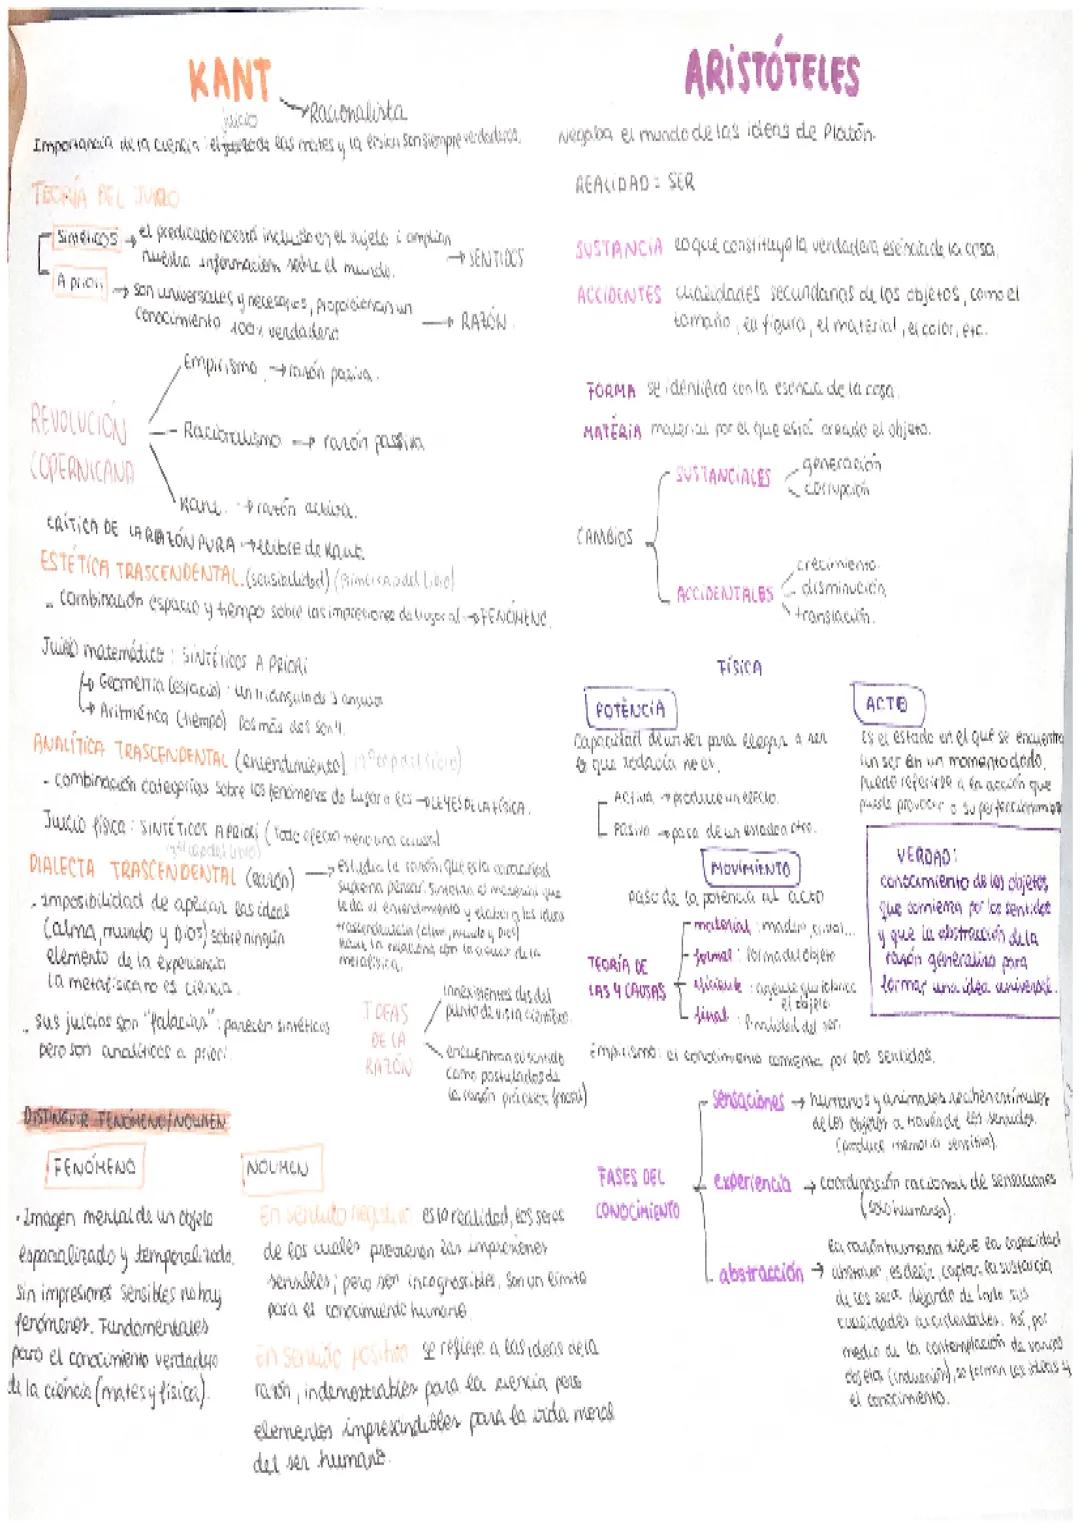 KANT
Racionalista
juicio
Importancia de la ciencia: el de las mates y la física son siempre verdaderos.
TEORÍA DEL JUICIO
Sintéticos → el predicado no está incluido en el sujeto i amplian
nuestra información sobre el mundo. → SENTIDOS
A priori → son universales y necesarios, proporcionan un
conocimiento 100% verdadero → RAZÓN.
REVOLUCIÓN
COPERNICANA
Empirismo → razón pasiva.
Racionalismo → razón passiva
Kant. → razón activa.
CRÍTICA DE LA RAZÓN PURA → llibre de Kant
ESTÉTICA TRASCENDENTAL. (sensibilidad) (Primera cap del libro)
- Combinación espacio y tiempo sobre las impresiones da lugar al → FENÓMENO.
Juicio matemático: SINTÉTICOS A PRIORI
→ Geometría (espacio): un triangulo ds 3 angulos
→ Aritmética (tiempo) Dos más dos son 4.
ANALÍTICA TRASCENDENTAL (entendimiento) cap del libro)
- combinación categorías sobre los fenómenos da lugar a las → LEYES DE LA FÍSICA.
Juicio física: SINTÉTICOS A PRIORI (Todo efecto tiene una causa)
cap del libro)
DIALECTA TRASCENDENTAL (razón) → Estudia la razón, que es la capacidad
suprema pensar. Sintetiza el material que
le da el entendimiento y elabora las ideas
trascendentales (alma, mundo y Dios)
metafísica.
- Imposibilidad de aplicar las ideas
(alma, mundo y Dios) sobre ningún
elemento de la experiencia
La metafísica no es ciencia.
- sus juicios son "falacias": parecen sintéticos
pero son analíticos a priori.
IDEAS
DE LA
RAZÓN
Inexistentes des del
punto de vista científico.
encuentran su sentido
como postulados de
la razón práctica (moral)
DISTINGUIR FENÓMENO/NOUMEN
FENÓMENO
· Imagen mental de un objeto
espacializado y temporalizado.
Sin impresiones sensibles no hay
fenómenos. Fundamentales
para el conocimiento verdadero
de la ciencia (mates y física).
NOUMEN
En sentido negativo: es la realidad, los seres
de los cuales provienen las impresiones
sensibles; pero son incognoscibles, son un límite
para el conocimiento humano.
En sentido positivo se refiere a las ideas de la
razón, indemostrables para la ciencia pero
elementos imprescindibles para la vida moral
del ser humano.
ARISTÓTELES
Negaba el mundo de las ideas de Platón.
REALIDAD = SER
SUSTANCIA lo que constituye la verdadera esencia de la cosa.
ACCIDENTES cualidades secundarias de los objetos, como el
tamaño, la figura, el material, el color, etc.
FORMA se identifica con la esencia de la cosa.
MATERIA material por el que está creado el objeto.
CAMBIOS
SUSTANCIALES
generación
corrupción
ACCIDENTALES
crecimiento.
disminución
translación.
FÍSICA
POTÈNCIA
Capacidad de un ser para llegar a ser
lo que todavía no es.
Activa → produce un efecto.
Pasiva → pasa de un estado a otro.
ACTO
Es el estado en el que se encuentra
un ser en un momento dado.
Puede referirse a la acción que
pueda provocar o su perfeccionamiento
MOVIMIENTO
paso de la potencia al acto
TEORÍA DE
LAS 4 CAUSAS
material: madera, cristal...
formal: forma del objeto
eficiente: agente que fabrica
el objeto
final: Finalidad del ser.
VERDAD:
conocimiento de los objetos
que comienza por los sentidos
y que la abstracción de la
razón generaliza para
formar una idea universal.
Empirismo: el conocimiento comienza por los sentidos.
FASES DEL
CONOCIMIENTO
sensaciones → humanos y animales reciben estímulos
de los objetos a través de los sentidos.
(produce memoria sensitiva).
experiencia → coordinación racional de sensaciones
(solo humanos).
abstracción → La razón humana tiene la capacidad
abstraer, es decir, captar la sustancia
de los seres dejando de lado sus
cualidades accidentales. Así, por
medio de la contemplación de varios
objetos (inducción), se forman las ideas y
el conocimiento.